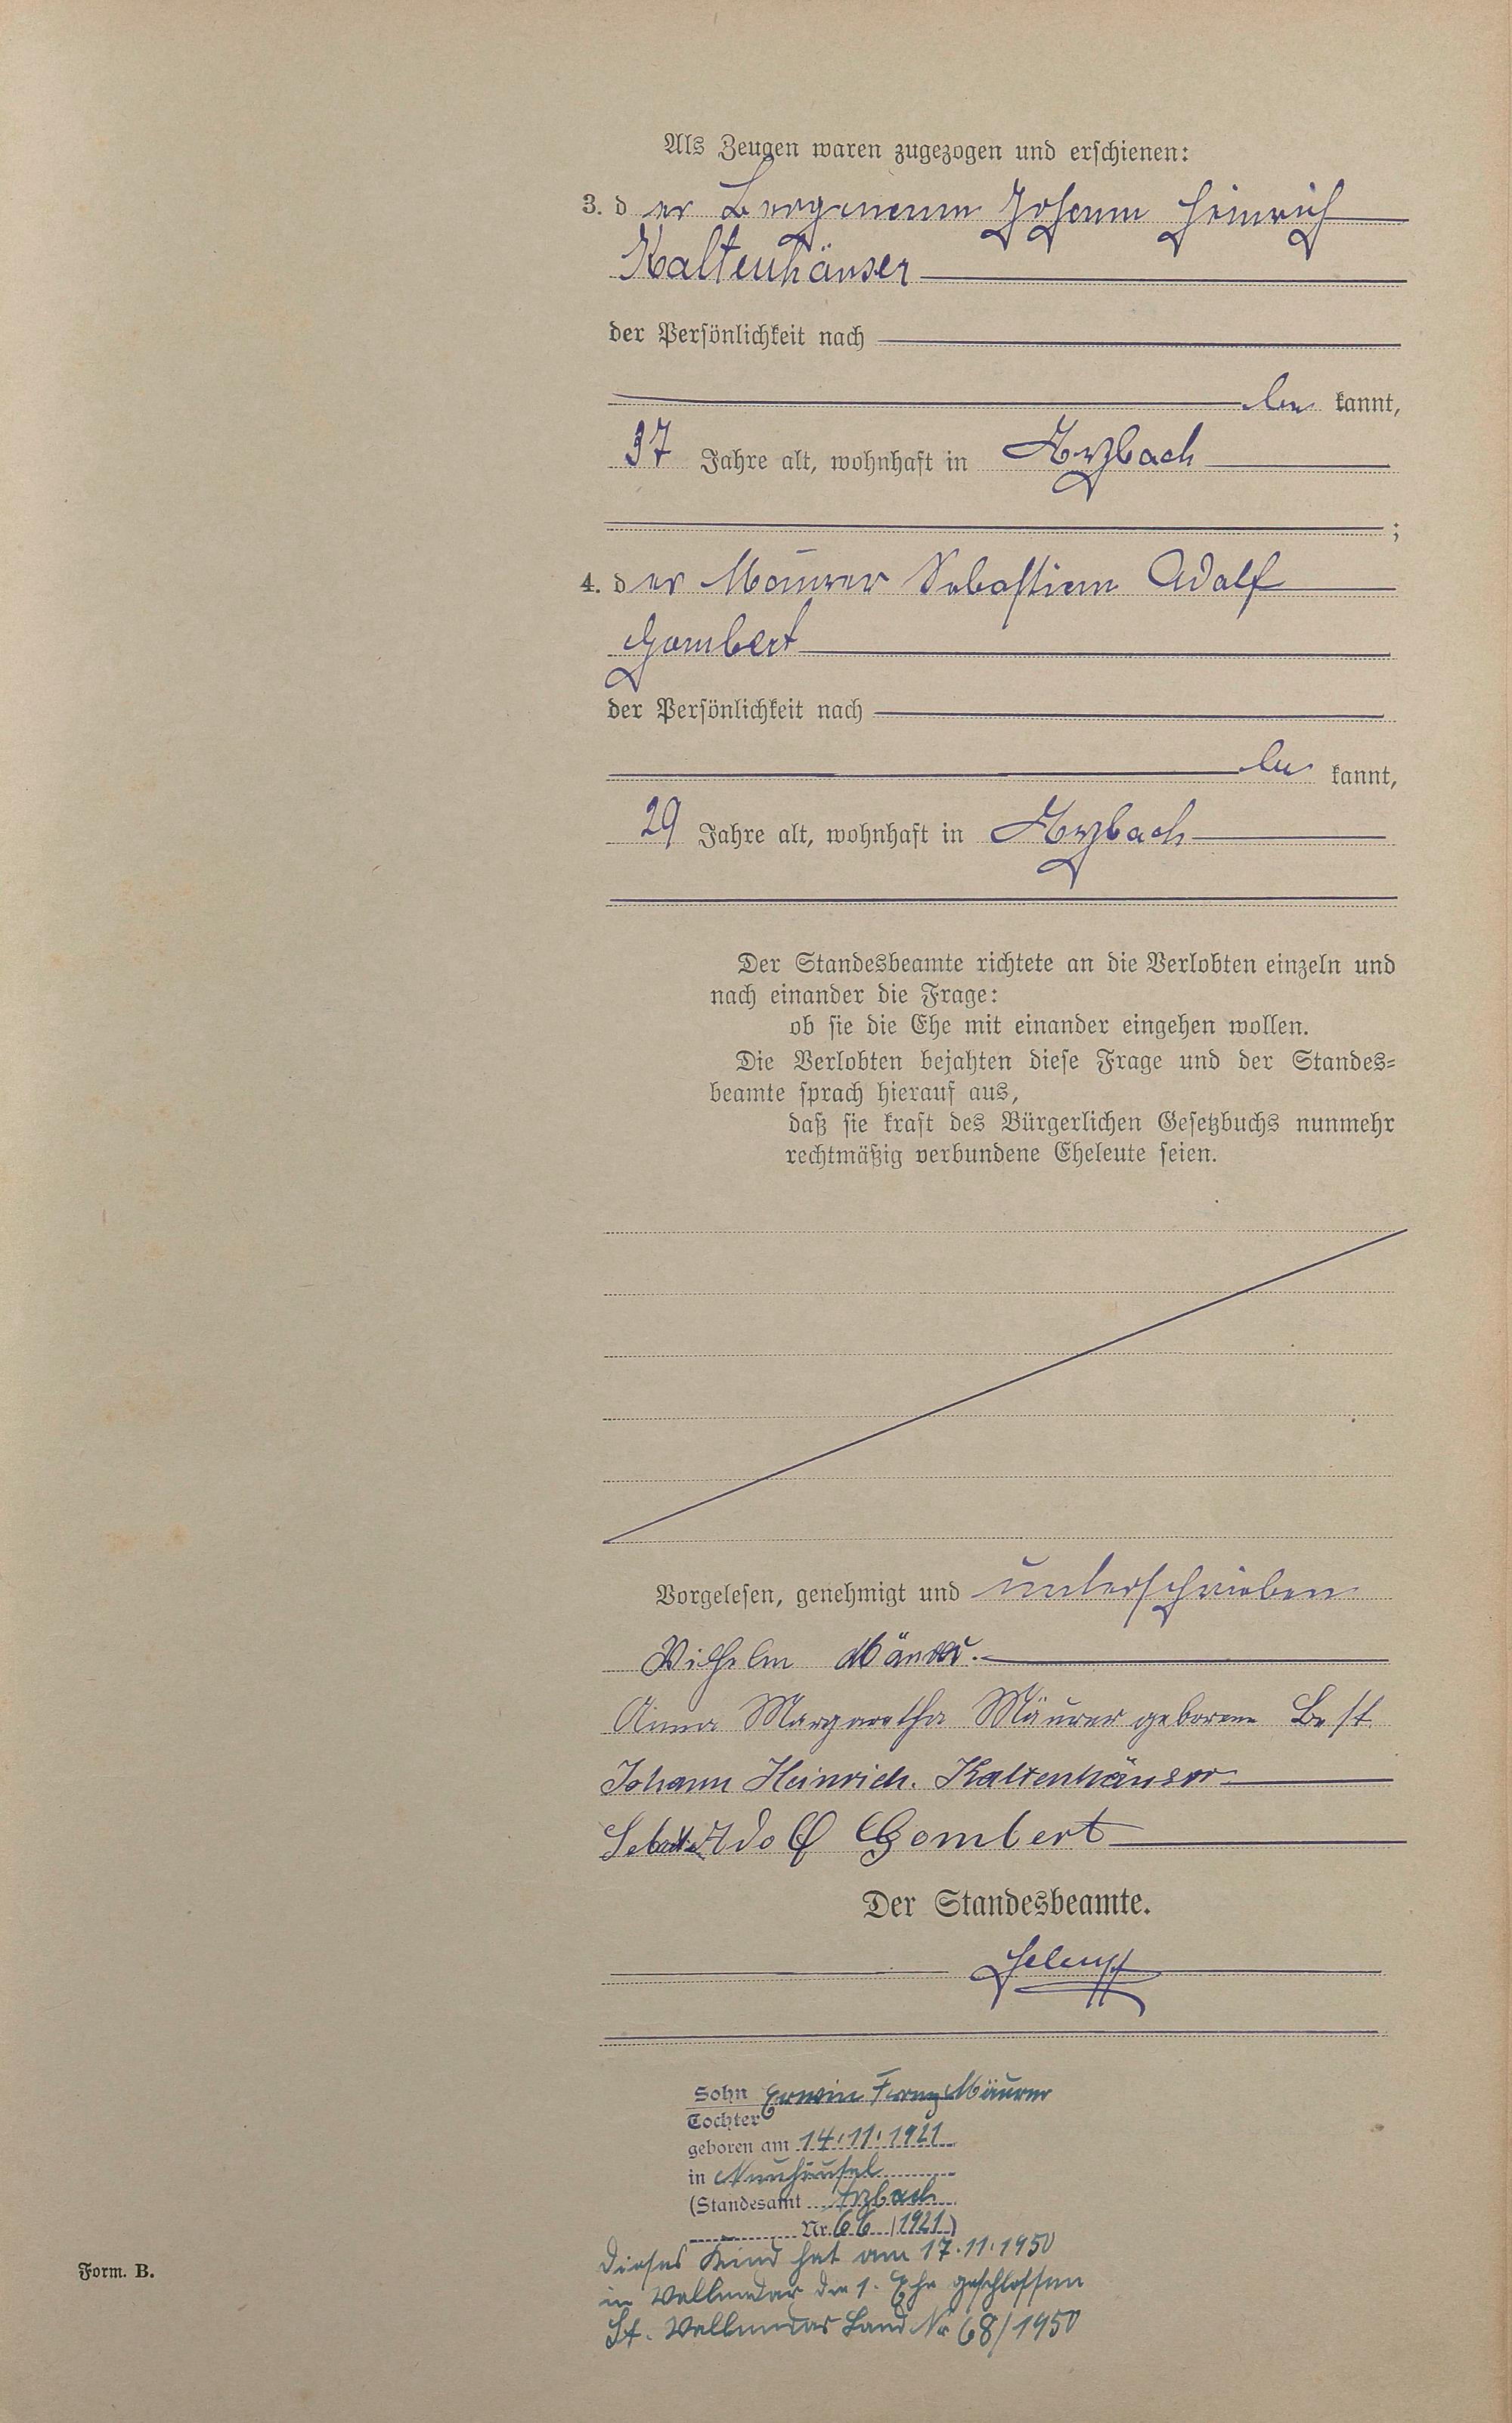 Als Zeugen waren zugezogen und erschienen:
3. der Bergmann Johann Heinrich
Kaltenhäuser
der Persönlichkeit nach
be kannt,
37 Jahre alt, wohnhaft in Arzbach
;
4. der Maurer Sebastian Adolf
Gombert
der Persönlichkeit nach
be kannt,
29 Jahre alt, wohnhaft in Arzbach
Der Standesbeamte richtete an die Verlobten einzeln und
nach einander die Frage:
ob sie die Ehe mit einander eingehen wollen.
Die Verlobten bejahten diese Frage und der Standes=
beamte sprach hierauf aus,
daß sie kraft des Bürgerlichen Gesetzbuchs nunmehr
rechtmäßig verbundene Eheleute seien.
Vorgelesen, genehmigt und unterschrieben
Wilhelm Mäurer.
Anna Margaretha Mäurer geborene Best
Johann Heinrich. Kaltenhäuser
Adolf Gombert
Der Standesbeamte.
Sohn Erwin Franz Mäurer
Tochter
geboren am 14.11.1921
in Neuhäusel
(Standesamt Arzbach
Nr. 66/1921)
Dieses Kind hat am 17.11.1950
in Vallendar die 1. Ehe geschlossen
St. Vallendar Land Nr 68/1950
Form. B.